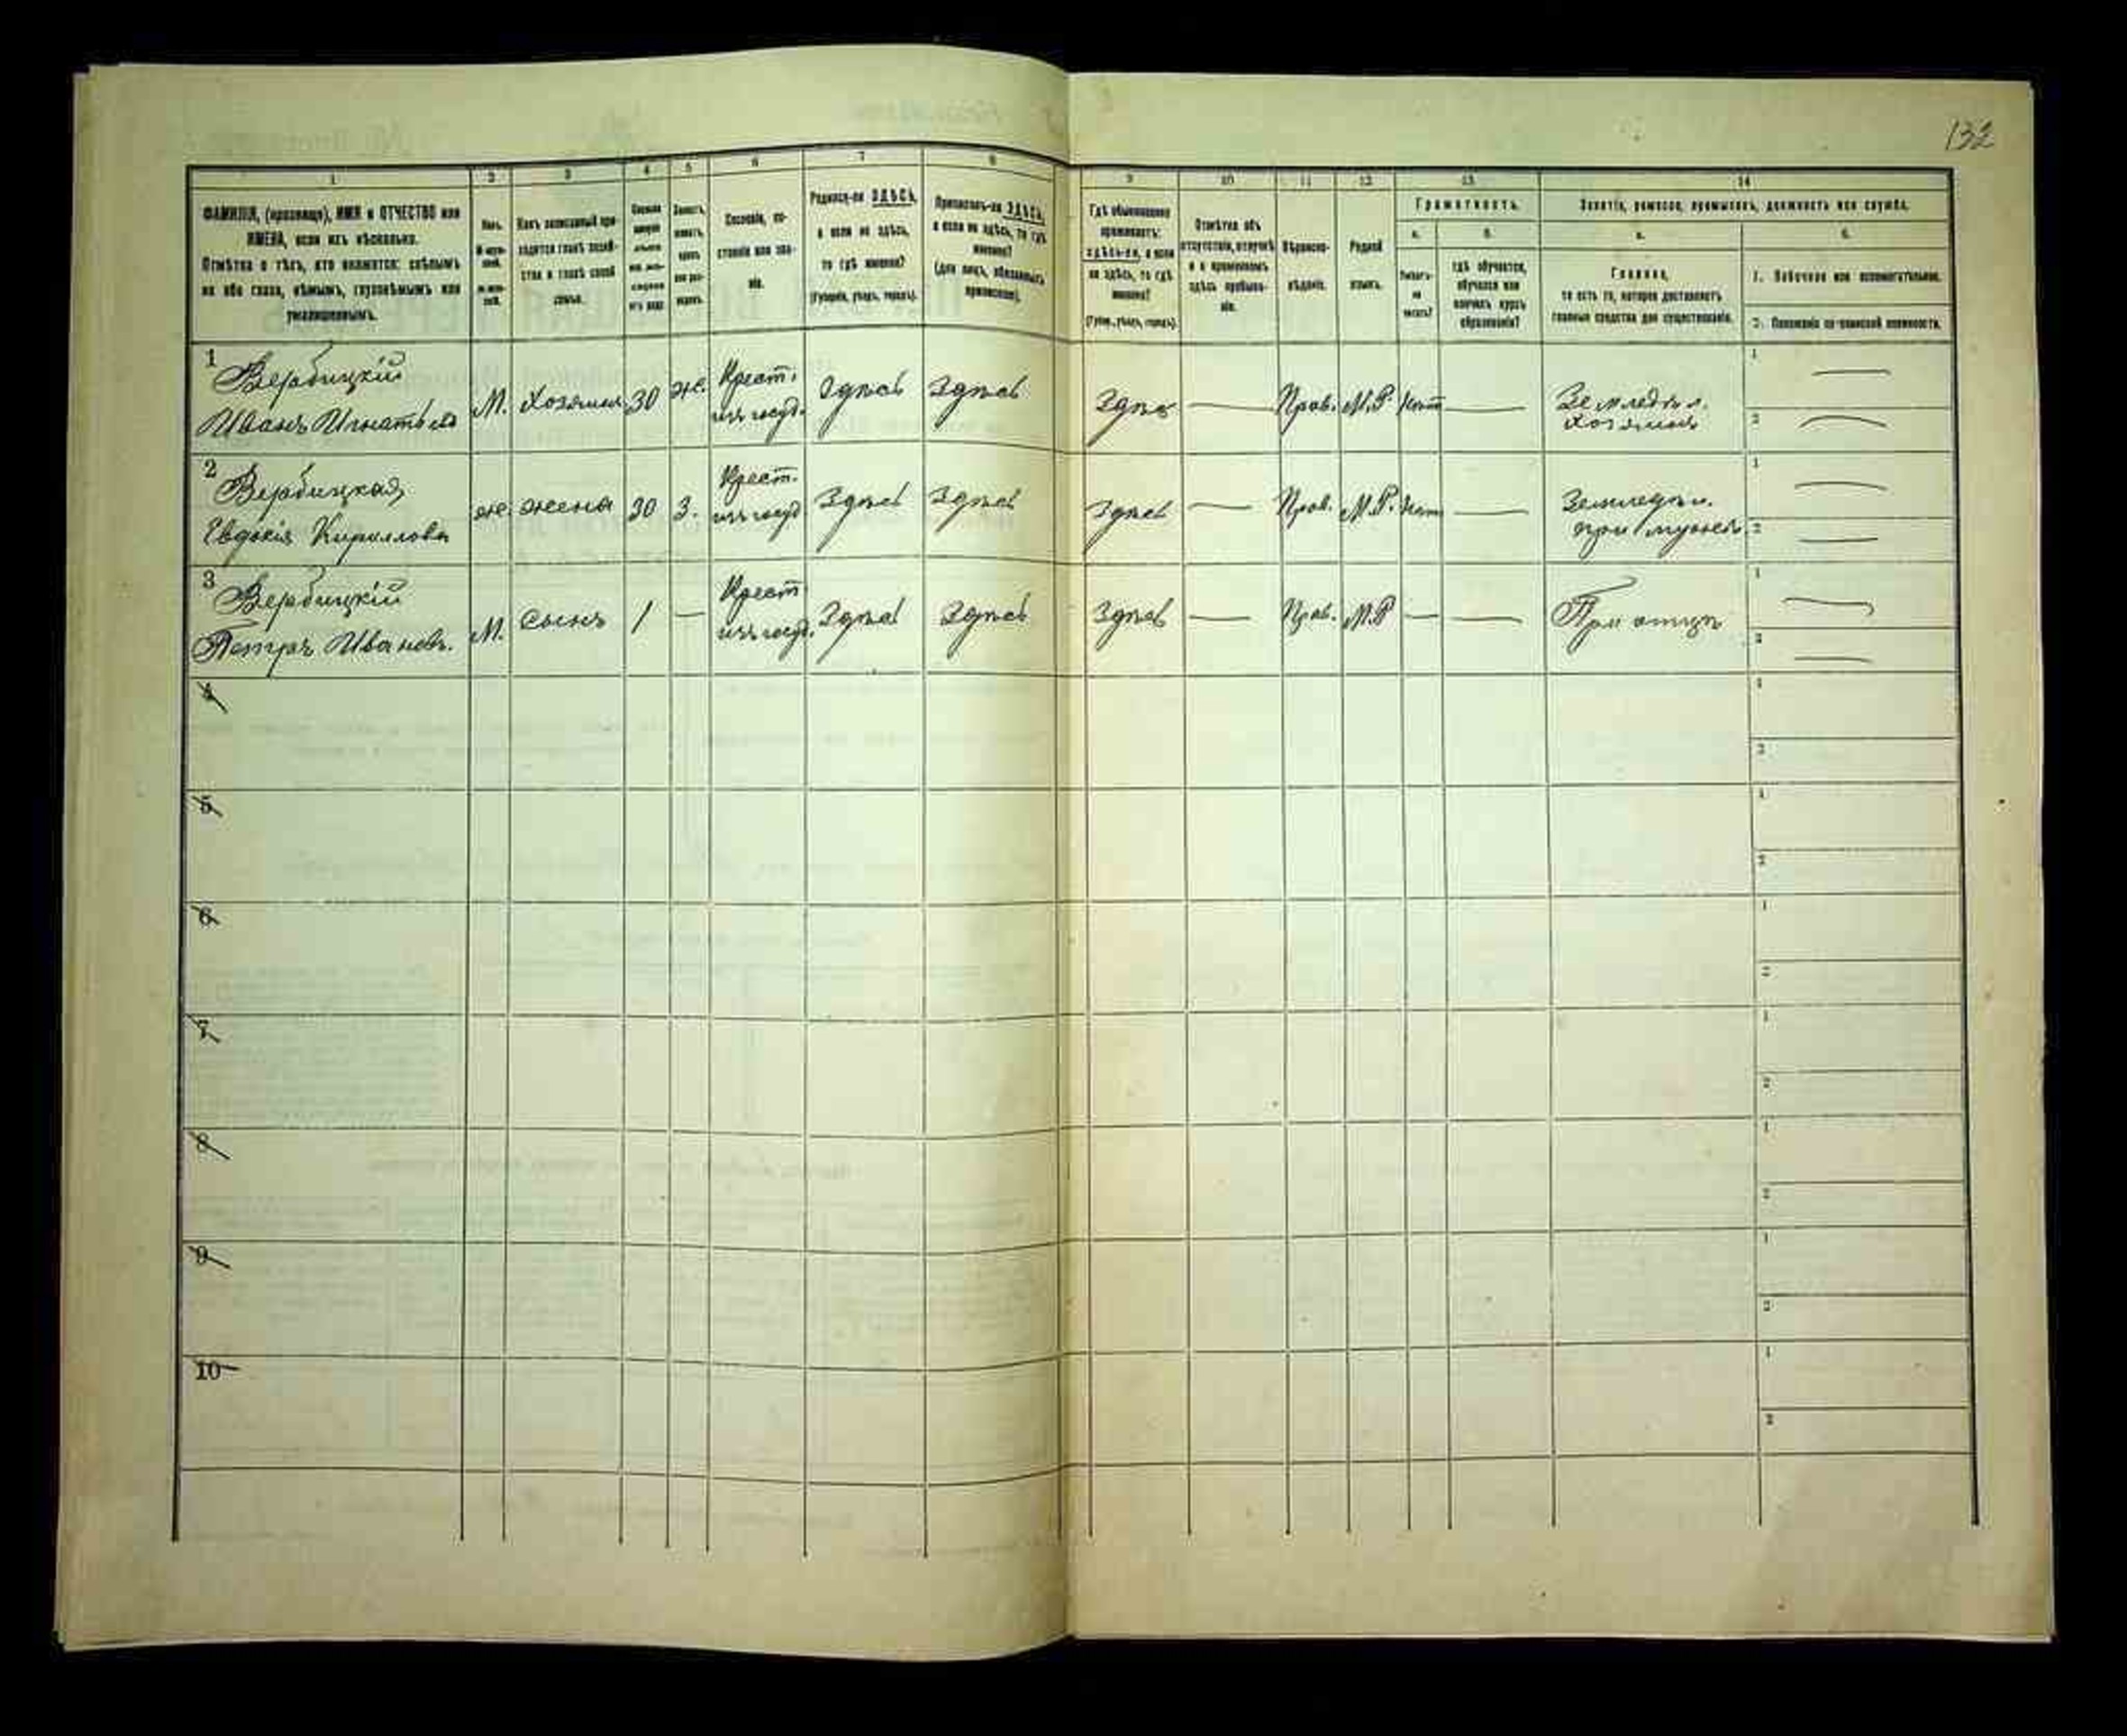 132
1
2
3
4
5
6
7
8
9
10
11
12
13
14
ФАМИЛІЯ, (прозвище), ИМЯ и ОТЧЕСТВО или
ИМЕНА, если ихъ нѣсколько.
Отмѣтка о тѣхъ, кто окажется: слѣпымъ
на оба глаза, нѣмымъ, глухонѣмымъ или
умалишеннымъ.
Полъ.
Какъ записанный при-
ходится главѣ хозяй-
ства и главѣ своей
семьи.
Сословіе, со-
стояніе или зва-
ніе.
Родился-ли ЗДѢСЬ,
а если не здѣсь,
то гдѣ именно?
(Губернія, уѣздъ, городъ).
Приписанъ-ли ЗДѢСЬ,
а если не здѣсь, то гдѣ
именно?
(для лицъ, обязанныхъ
припискою).
Гдѣ обыкновенно
проживаетъ:
здѣсь-ли, а если
не здѣсь, то гдѣ
именно?
(Губер., уѣздъ, городъ).
Отмѣтка объ
отсутствіи, отлучкѣ
и о временномъ
здѣсь пребыва-
ніи.
Вѣроиспо-
вѣданіе.
Родной
языкъ.
Грамотность.
а.
б.
гдѣ обучается,
обучался или
кончилъ курсъ
образованія?
Занятіе, ремесло, промыселъ, должность или служба.
а.
б.
Главное,
то есть то, которое доставляетъ
главныя средства для существованія.
1. Побочное или вспомогательное.
2. Положеніе по воинской повинности.
1
Вербицкій
Иванъ Игнатьевъ
М.
Хозяинъ
30
ж.
Крест.
изъ госуд.
Здѣсь
Здѣсь
Здѣсь
—
Прав.
М.Р.
нѣтъ
—
Земледѣл.
Хозяинъ
1 —
2 —
2
Вербицкая
Евдокія Кириллова
ж.
жена
30
З.
Крест.
изъ госуд
Здѣсь
Здѣсь
Здѣсь
—
Прав.
М.Р.
нѣтъ
—
Земледѣл.
при мужѣ
1 —
2 —
3
Вербицкій
Петръ Ивановъ.
М.
сынъ
1
—
Крест
изъ госуд.
Здѣсь
Здѣсь
Здѣсь
—
Прав.
М.Р
—
—
При отцѣ
1 —
2 —
4
1
2
5
1
2
6
1
2
7
1
2
8
1
2
9
1
2
10
1
2